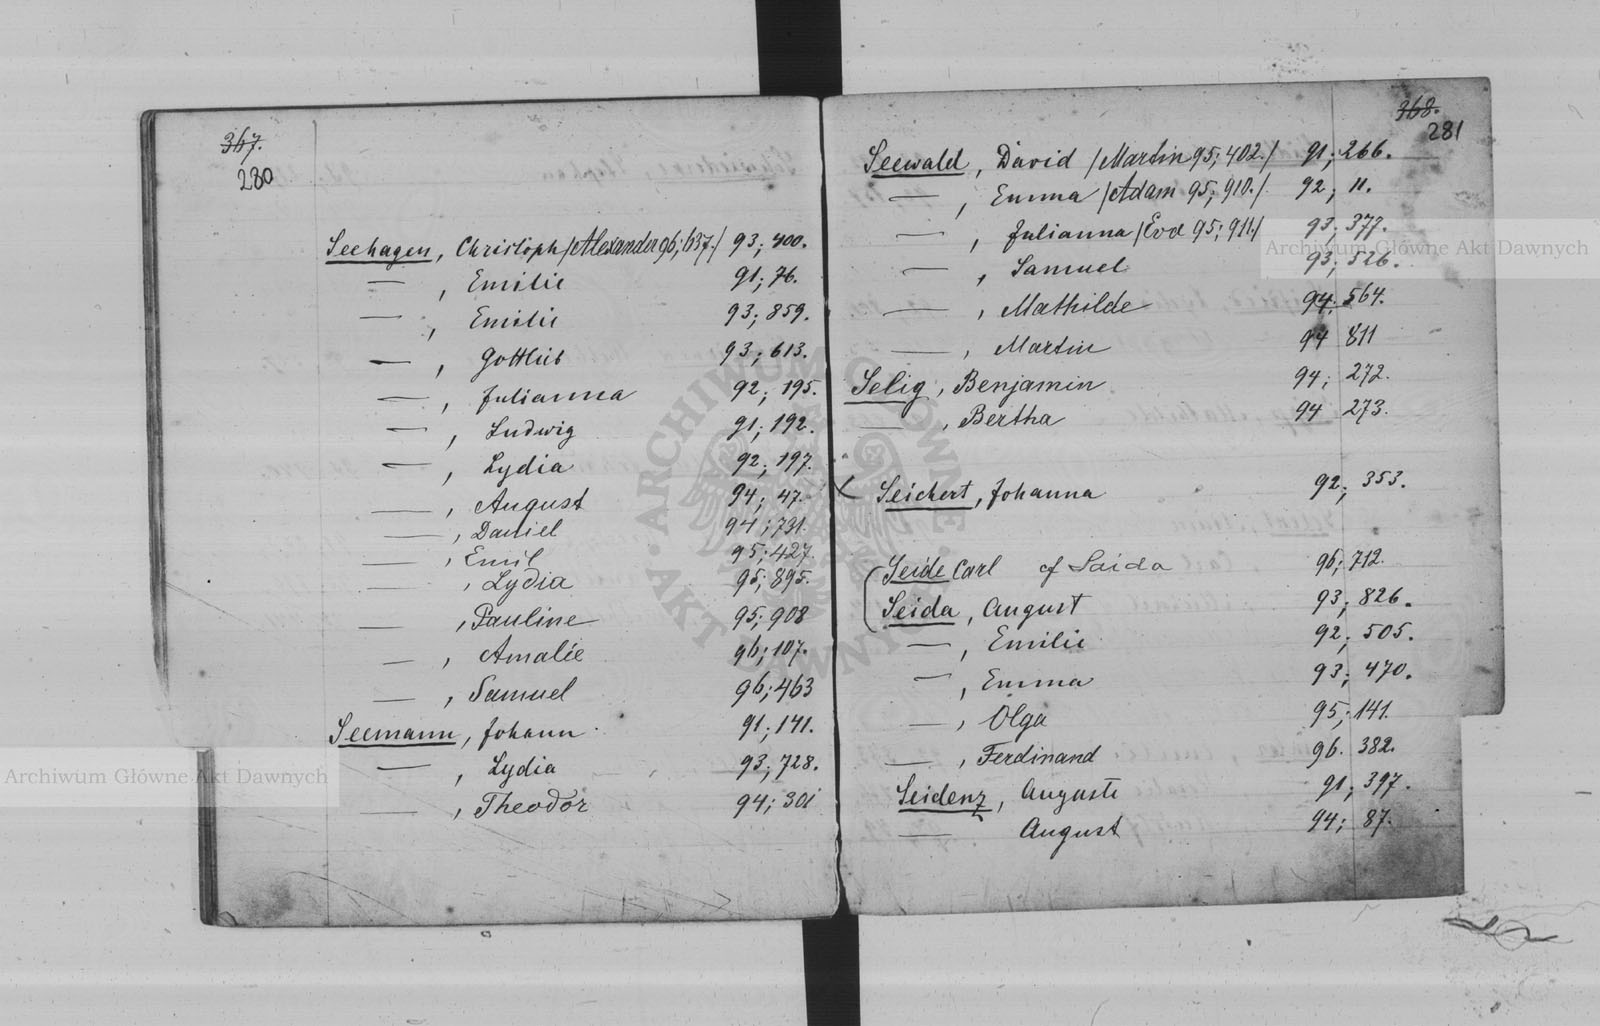 367.
280
Seehagen, Christoph /Alexander 96; 637./ 93; 400.
— , Emilie 91; 76.
— , Emilie 93; 859.
— , Gottlieb 93; 613.
— , Julianna 92; 195.
— , Ludwig 91; 192.
— , Lydia 92; 197.
— , August 94; 47.
— , Daniel 94; 731.
— , Emil 95; 427.
— , Lydia 95; 895.
— , Pauline 95; 908
— , Amalie 96; 107.
— , Samuel 96; 463
Seemann, Johann 91; 141.
— , Lydia 93; 728.
— , Theodor 94; 301
368.
281
Seewald, David /Martin 95; 402./ 91; 266.
— , Emma /Adam 95; 910./ 92; 11.
— , Julianna /Eva 95; 911./ 93; 377.
— , Samuel 93; 526.
— , Mathilde 94; 564.
— , Martin 94 811
Selig, Benjamin 94; 272.
— , Bertha 94 273.
Seichert, Johanna 92; 353.
Seide Carl cf Saida 96; 712.
Seida, August 93; 826.
— , Emilie 92; 505.
— , Emma 93; 470.
— , Olga 95; 141.
— , Ferdinand 96. 382.
Seidenz, Auguste 91; 397.
— August 94; 87.
Archiwum Główne Akt Dawnych
Archiwum Główne Akt Dawnych
ARCHIWUM GŁÓWNE AKT DAWNYCH